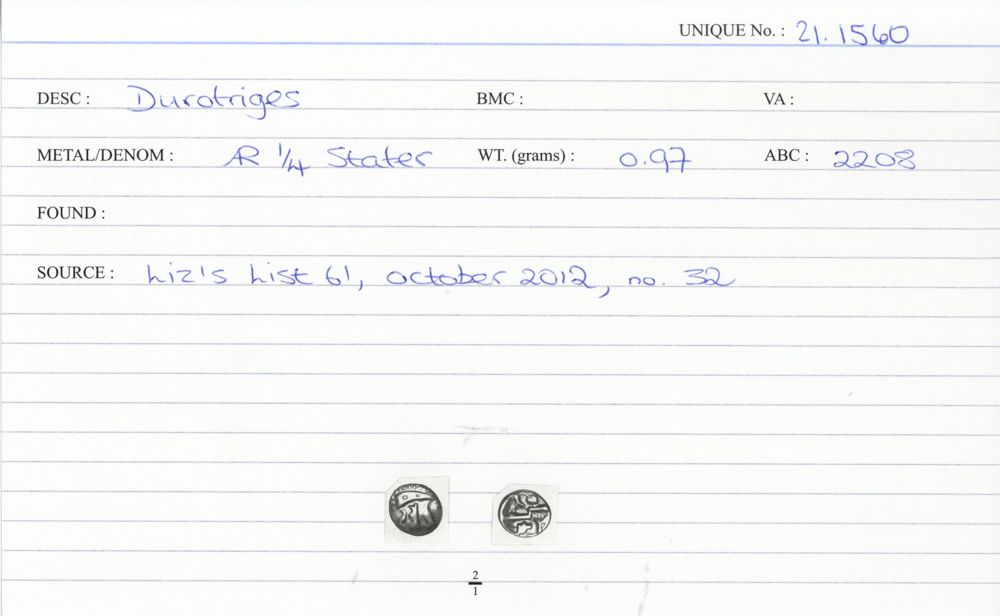 UNIQUE No. : 21.1560
DESC : Durotriges BMC : VA :
METAL/DENOM : AR 1/4 Stater WT. (grams) : 0.97 ABC : 2208
FOUND :
SOURCE : Liz's List 61, October 2012, no. 32
2
1